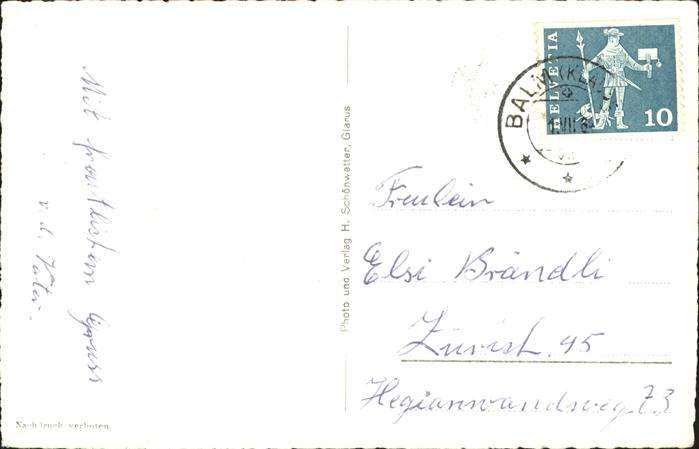 Mit freundlichem Gruss
v. d. Vater.
Nachdruck verboten
Photo und Verlag H. Schönwetter, Glarus
HELVETIA
10
BALM (KLA
1.VII.6
Freulein
Elsi Brändli
Zürich 45
Hegianwandweg 73